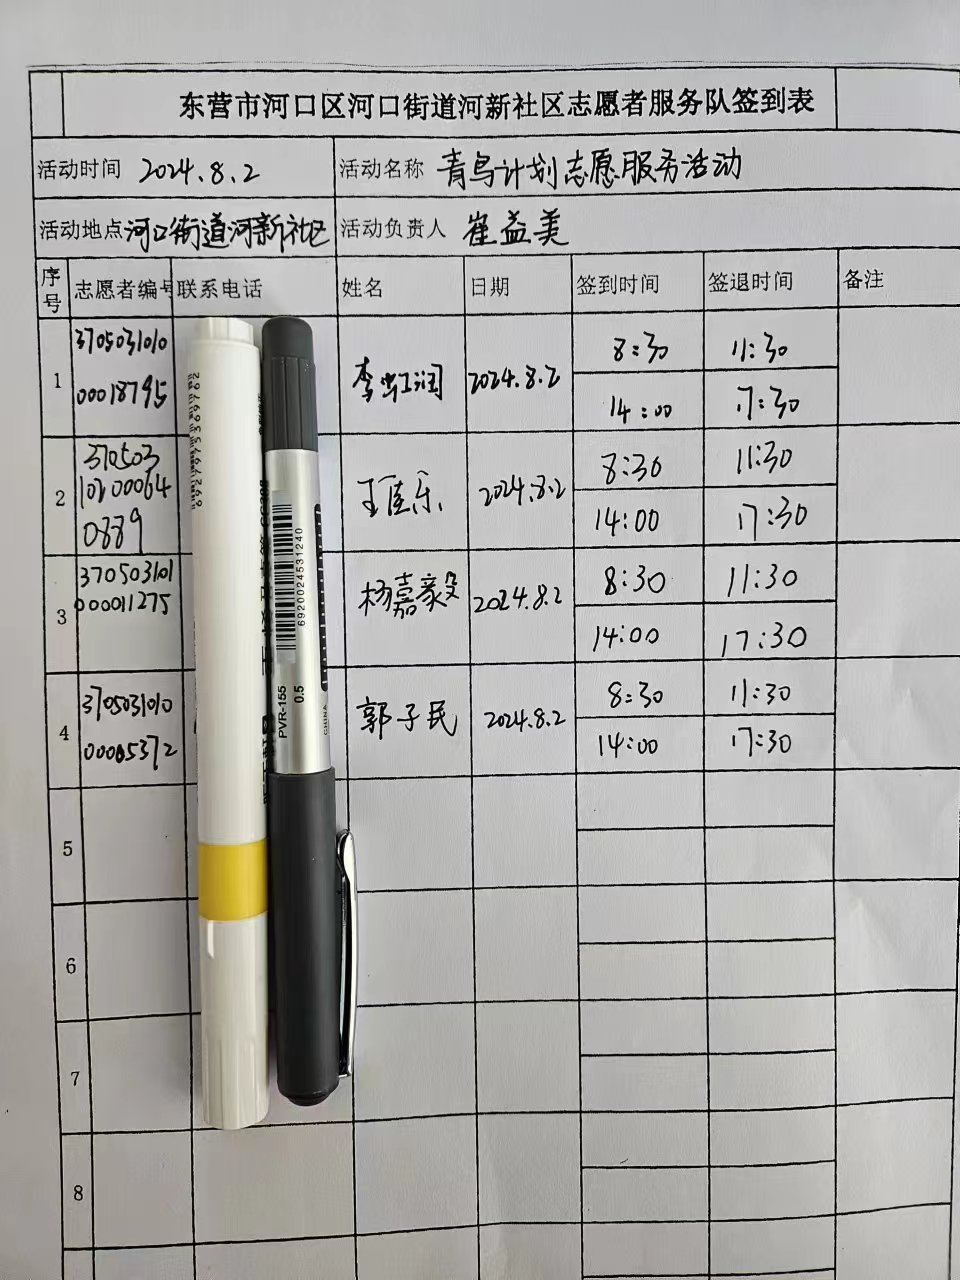 东营市河口区河口街道河新社区志愿者服务队签到表
活动时间 2024.8.2 活动名称 青鸟计划志愿服务活动
活动地点 河口街道河新社区 活动负责人 崔益美
序号 志愿者编号 联系电话 姓名 日期 签到时间 签退时间 备注
3705031010 8:30 11:30
1 00018795 李虹润 2024.8.2
14:00 17:30
370503 8:30 11:30
2 王佳乐 2024.8.2
0889 14:00 17:30
370503101 8:30 11:30
3 000011275 杨嘉毅 2024.8.2
14:00 17:30
3705031010 8:30 11:30
4 00005372 郭子民 2024.8.2
14:00 17:30
5
6
7
8
6927975369762
6920024531240
PVR-155 0.5
CHINA